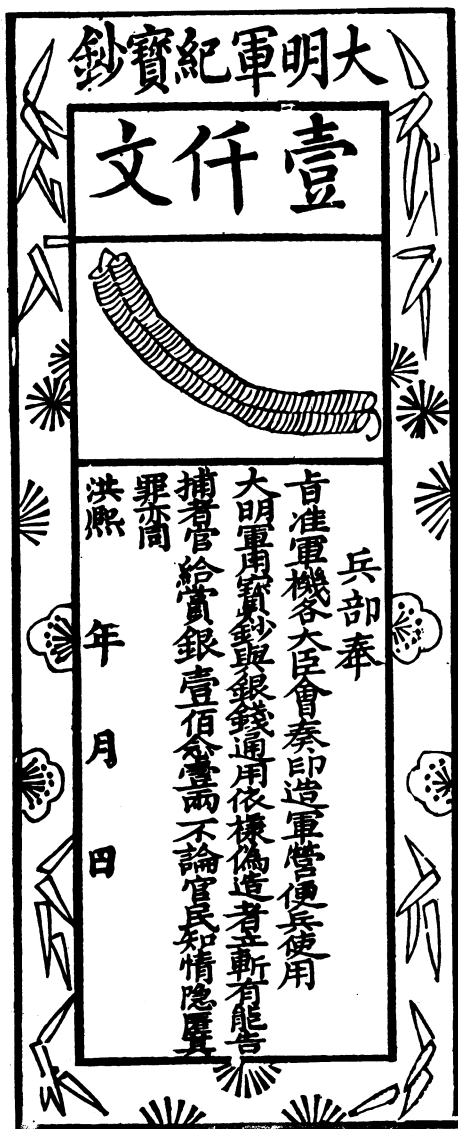 大明軍紀寳鈔
壹仟文
兵部奉
旨准軍機各大臣會奏印造軍營便兵使用
大明軍用寳鈔與銀錢通用依樣偽造者立斬有能告
捕者官給賞銀壹佰念壹兩不論官民知情隐匿其
罪亦同
洪熈　年　月　日